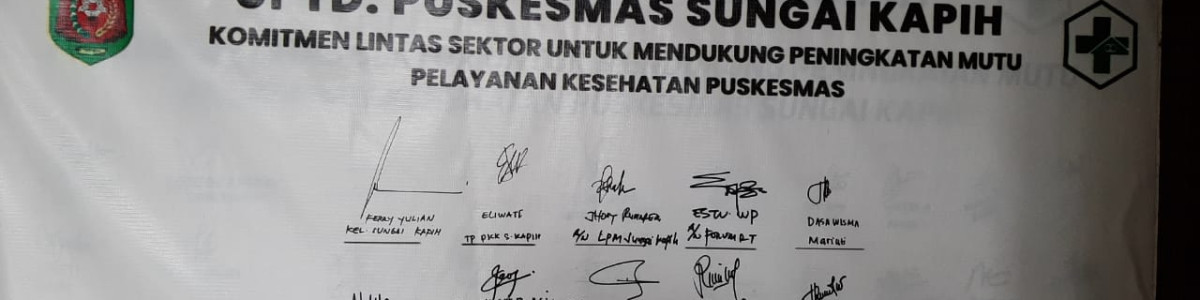 UPTD. PUSKESMAS SUNGAI KAPIH
KOMITMEN LINTAS SEKTOR UNTUK MENDUKUNG PENINGKATAN MUTU
PELAYANAN KESEHATAN PUSKESMAS
FERRY YULIAN
KEL. SUNGAI KAPIH
ELIWATI
TP PKK S. KAPIH
JHONY
LPM Sungai Kapih
ESTU WP
FORUM RT
DASAWISMA
Mariati